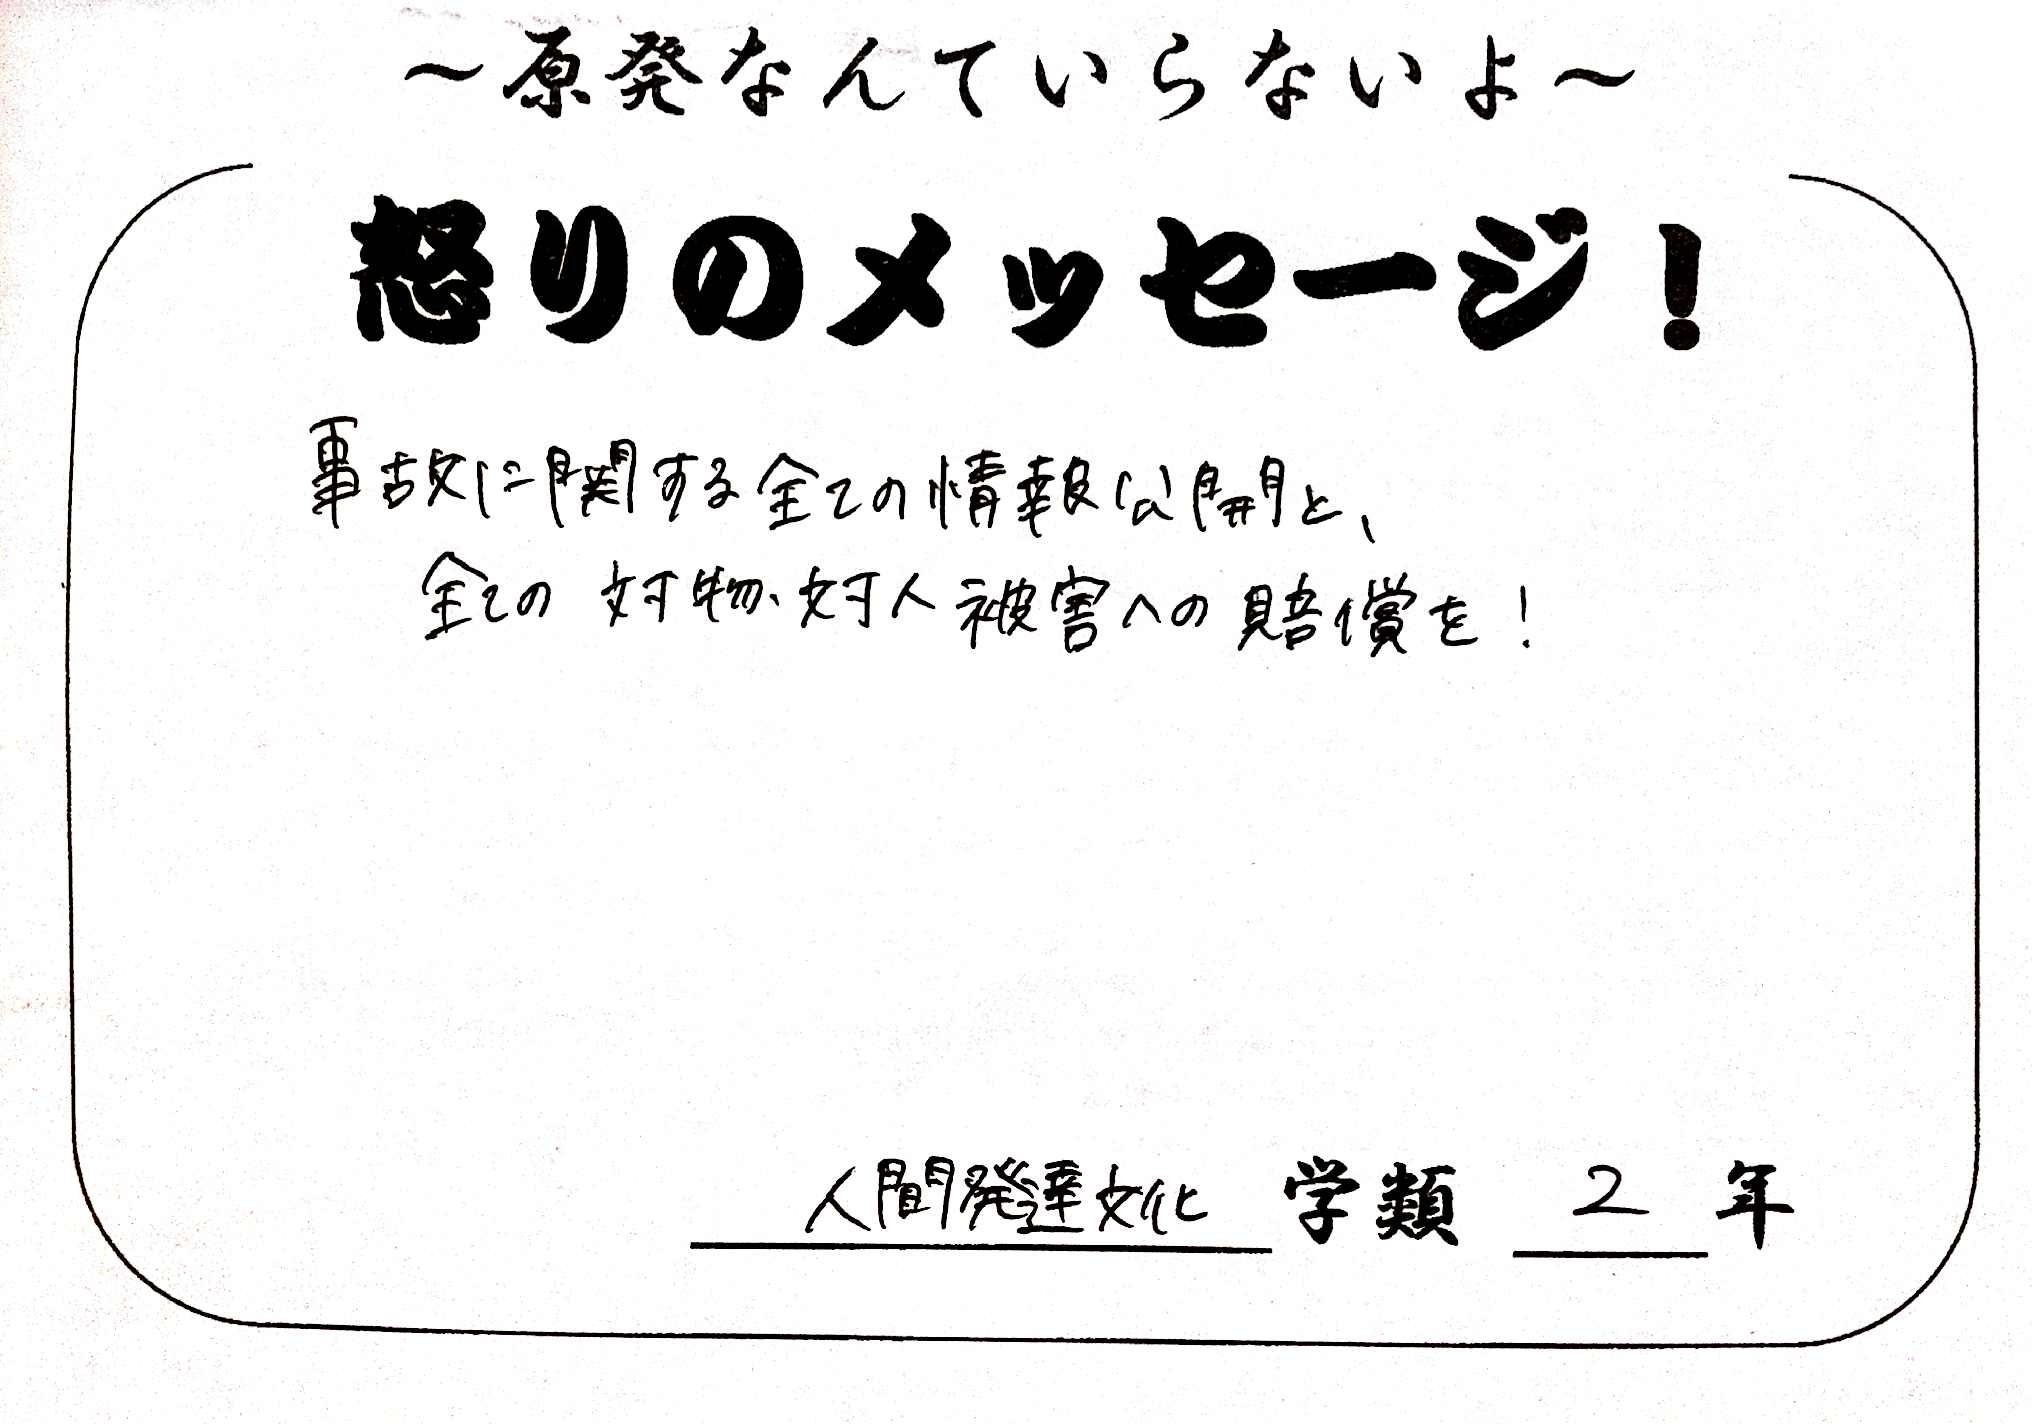 ～原発なんていらないよ～
怒りのメッセージ！
事故に関する全ての情報公開と、
全ての対物、対人被害への賠償を！
人間発達文化学類 2年